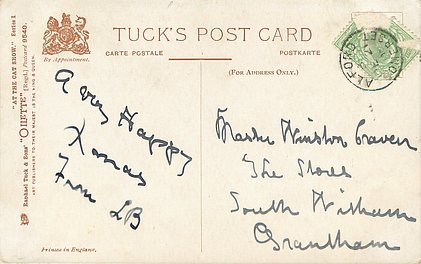 TUCK'S POST CARD
CARTE POSTALE
POSTKARTE
By Appointment.
(For Address Only.)
"AT THE CAT SHOW." Series I
"OILETTE" [Regd.] Postcard 9540.
Raphael Tuck & Sons'
ART PUBLISHERS TO THEIR MAJESTIES THE KING & QUEEN.
A very Happy
Xmas
From LB
Master Winston Craven
The Stores
South Witham
Grantham
Printed in England.
ALFORD